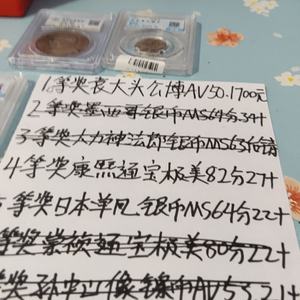 1等奖袁大头公博AV50.1700元
2等奖墨西哥银币MS64分34
3等奖大力神法郎银币MS63
4等奖康熙通宝极美82分27
等奖日本羊凡银币MS64分22
等奖崇祯通宝极美80分22
等奖孙中山像镍币AV53.2